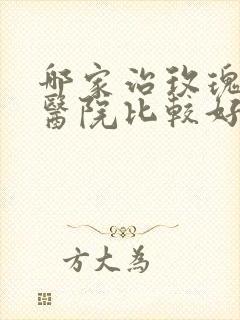 哪家治玫瑰
醫院比較好
方大為